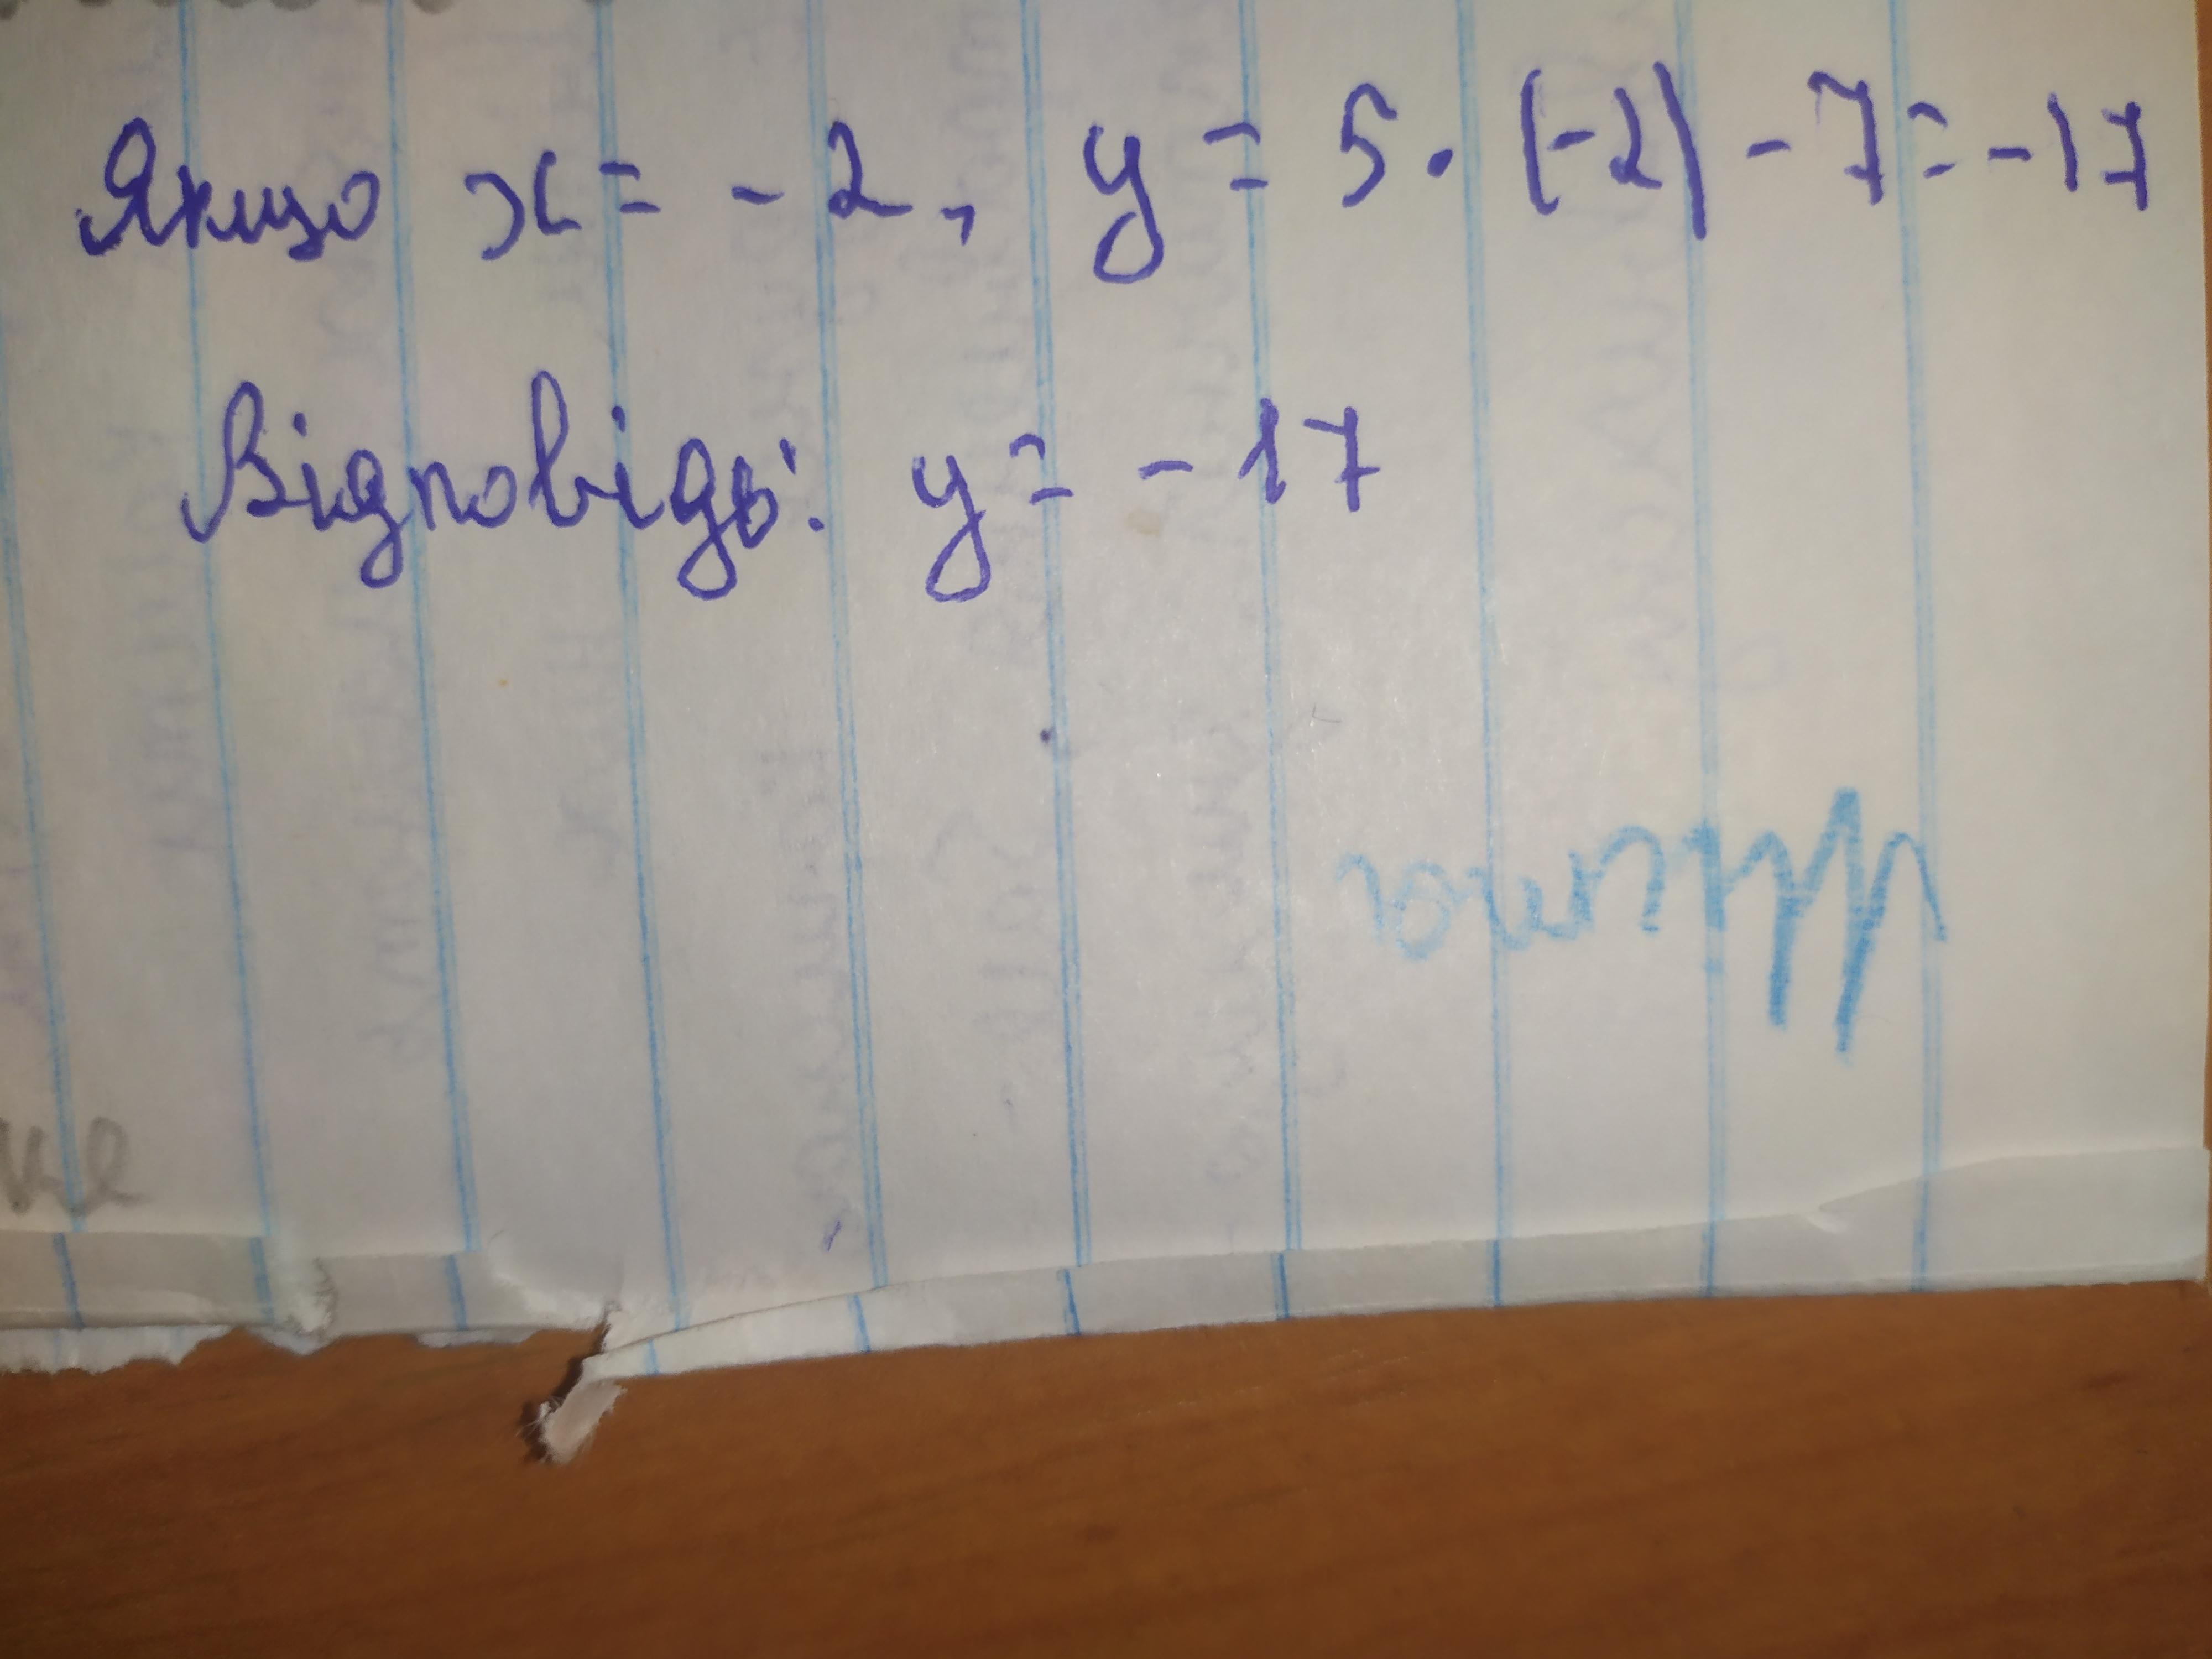 Якщо x = - 2, y = 5 · (-2) - 7 = - 17
Відповідь: y = - 17
ке